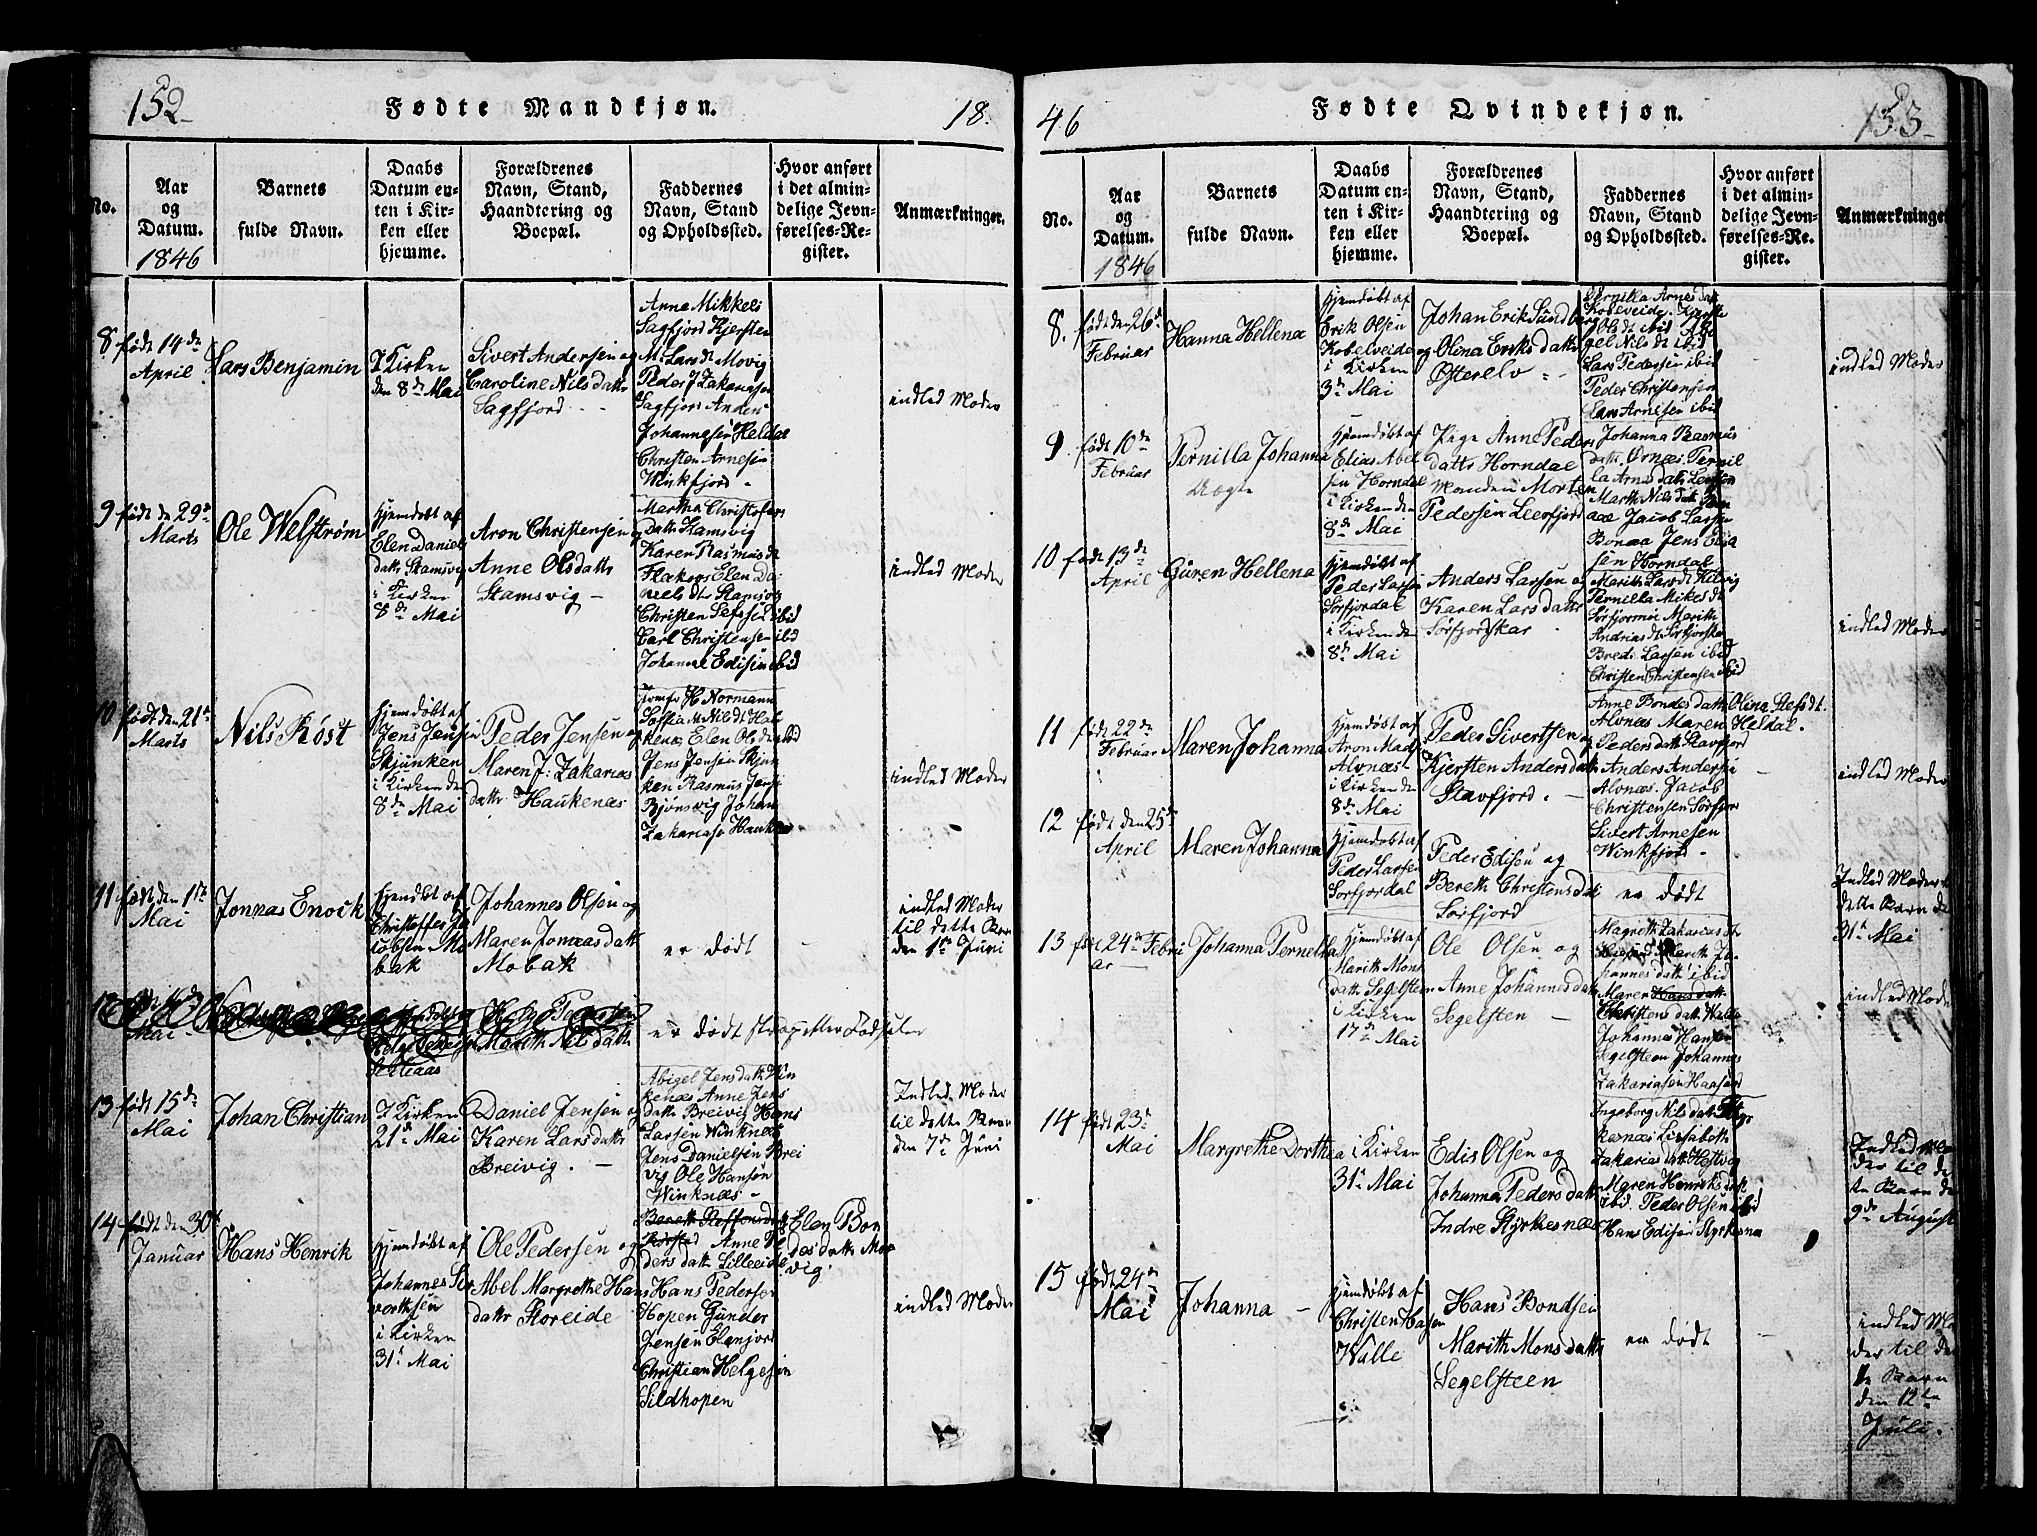 152
Fødte Mandkjøn.
18.
No.
Aar
og
Datum.
1846
Barnets
fulde Navn.
Daabs
Datum en-
ten i Kir-
ken eller
hjemme.
Forældrenes
Navn, Stand,
Haandtering og
Boepæl.
Faddernes
Navn, Stand
og Opholdssted.
Hvor anført
i det almin-
delige Jevn-
førelses-Re-
gister.
Anmærkninger.
8 født 14de
April
Lars Benjamin
I Kirken
den 8de Mai
Sivert Andersen og
Caroline Nils datter
Sagfjord
Anne Mikkels
Sagfjord Kjersten
M. Lars dt Movig
Peder J Zakariasen
Sagfjord Anders
Johannesen Heldal
Christen Arnesen
Winkfjord
indled Moder
9 født den 29de
Marts
Ole Welstrøm
Hjemdøbt af
Elen Daniels
datter Stamsvig
i Kirken
8de Mai
Aron Christensen og
Anne Olsdatter
Stamsvig
Martha Christofers
datter Stamsvig
Karen Rasmus dt
Flaknes Elen Da
niels dt Stamsvig
Christen ibid
Carl Christensen ibid
Johannes Edisen ibid
indled Moder
10 født den 21de
Marts
Nils Røst
Hjemdøbt af
Jens Jensen
Skjunken
i Kirken den
8de Mai
Peder Jensen og
Maren J: Zakarias
datter Haukenæs
Jomfr H Normann
Sofia M Nils dt Hau
kenæs Elen Ols dt ibid
Jens Jensen Skjun
ken Rasmus Jensen
Bjørnsvig Johan
Zakariasen Hauk
indled Moder
11 født den 1te
Mai
Jonnas Enock
Hjemdøbt af
Christoffer Ja
cobsen Mo
bak
Johannes Olsen og
Maren Jonnas datter
Mobak
er dødt
indled Moder
til dette Barn
den 1te Juni
12
Mai
Marith Nils datter
er dødt strax efter Fødselen
13 født 15de
Mai
Johan Christian
I Kirken
21de Mai
Daniel Jensen og
Karen Lars datter
Breivig.
Abigel Jens datter Win
kenæs Anne Jens
datter Breivig Hans
Larsen Winknæs
Jens Danielsen Brei
vig Ole Hansen
Winknæs
Indled Moder
til dette Barn
den 7de Juni
14 født den 30te
Januar
Hans Henrik
Hjemdøbt af
Johannes Si
vertsen
i Kirken
31te Mai
Ole Pedersen og
Abel Margrethe Hans
datter Storeide
Bereth Steffensdatter
Anne Pe
ders datter Lilleeide
Hans Pedersen
Hopen Gunder
Jensen Elenjord
Christian Helgesen
Sildhopen
Elen Bon
des datter Mor
vig
indled Moder
46
Fødte Qvindekjøn.
153
No.
Aar
og
Datum.
1846
Barnets
fulde Navn.
Daabs
Datum en-
ten i Kir-
ken eller
hjemme.
Forældrenes
Navn, Stand,
Haandtering og
Boepæl.
Faddernes
Navn, Stand
og Opholdssted.
Hvor anført
i det almin-
delige Jevn-
førelses-Re-
gister.
Anmærkninge
8. født den 26de
Februar
Hanna Hellena
Hjemdøbt af
Erik Olsen
Kobelveide
i Kirken
3de Mai
Johan Erik Sundberg
og Olina Eriks datter
Østerelv
Pernilla Arnes dat
Kobelveide. Kjersti
Ols dt ibid Abe
gel Nils dt ibid
Lars Pedersen ibid
Peder Christensen
Lars Arnesen ibid
indled Moder
9 født 10de
Februar
Pernilla Johanna
Uægte
Hjemdøbt af
Elias Abel
sen Horndal
i Kirken den
8de Mai
Pige Anne Peders
datter Horndal
Manden Morten
Pedersen Leerfjord
Johanna Rasmus
datt. Ornæs. Pernil
la Arns datt Leerfjor
Marth Nils datt Bon
aae Jacob Larsen
Bonaa Jens Elia
sen Horndal
10 født 13de
April
Guren Hellena
Hjemdøbt af
Peder Larsen
Sørfjordal
i Kirken den
8de Mai
Anders Larsen og
Karen Lars datter
Sørfjordskar
Marith Lars dt Helvig
Pernilla Mikes dt
Sørfjormo Marith
Andrias dt Sørfjorska
Bredi Larsen ibid
Christen Christensen ibid
indled Moder
11 født 22de
Februar
Maren Johanna
Hjemdøbt af
Aron Mads
Alvnæs
i Kirken den
8de Mai
Peder Sivertsen og
Kjersten Anders datter
Stavfjord.
Anne Bondes datter Olina Stefs dt.
Alvnæs Maren Heldal.
Peders datt Stavfjord
Anders Andersen
Alvnæs. Jacob
Christensen Sørfjor
Sivert Arnesen
Winkfjor
indled Moder
12 født den 25de
April
Maren Johanna
Hjemdøbt af
Peder Larsen
Sørfjordal
Peder Edisen og
Bereth Christens dat
Sørfjord
er dødt
Indled Moder til
dette Barn de
31te Mai
13 født 24de Febru
ar
Johanna Pernella
Hjemdøbt af
Marith Mons
datt Segelsteen
i Kirken
17de Mai
Ole Olsen og
Anne Johannes datt
Segelsten
Magreth Zakarias dt
Marith Jo
hannes datt ibid
Maren Hans datt
Christens datt Walle
Johannes Hansen
Segelsteen Johannes
Zakariasen Haafjord
indled Mode
14 født 23de
Mai
Margrethe Dorthea
i Kirken
31te Mai
Edis Olsen og
Johanna Peders datt
Indre Styrkesnæs
Ingeborg Nils datt Styr
kesnæs Lisabeth
Zakarias datt Hestvig
Maren Henriks datt
ibid. Peder Olsen ibid
Hans Edisen Styrkesnæ
Indled Mo
der til de
te Barn de
9de August
15 født 24de
Mai
Johanna
Hjemdøbt af
Christen Hagen
Walle
Hans Bondsen
Marith Mons datter
Segelsteen
er dødt
indled Mo
der til det
te Barn
den 12te
Juli.